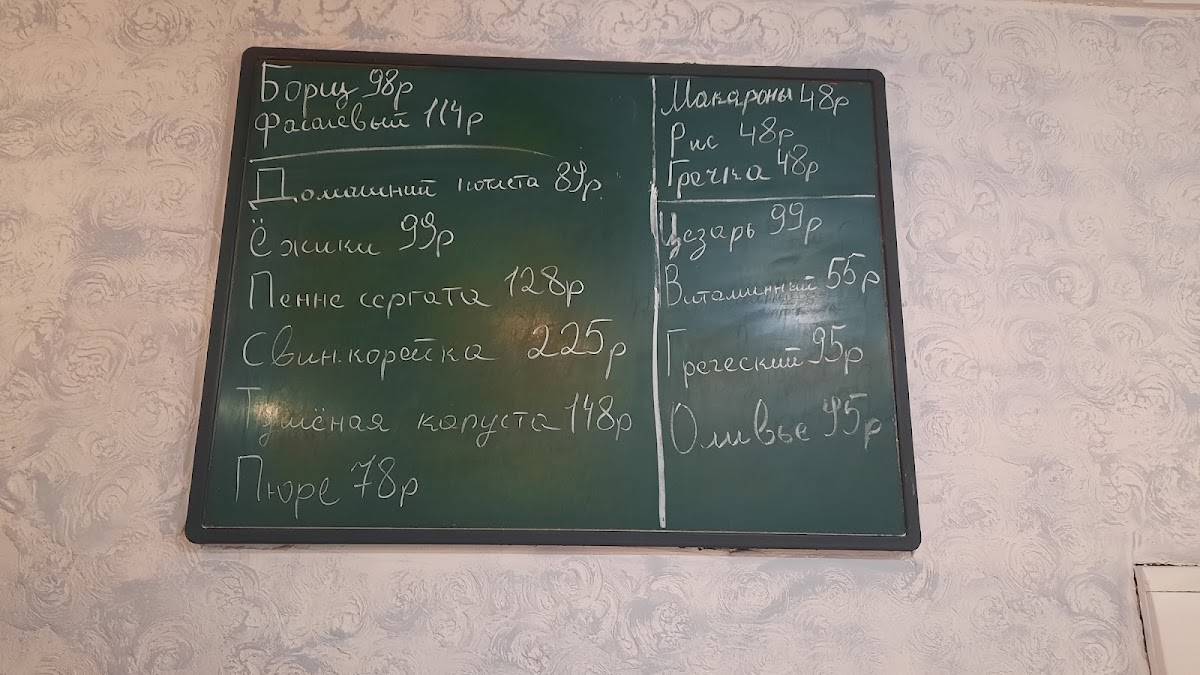 Борщ 98р
Фасолевый 114р
Домашний котлета 89р.
Ёжики 99р
Пенне сергата 128р
Свин.корейка 225р
Тушёная капуста 148р
Пюре 78р
Макароны 48р
Рис 48р
Гречка 48р
Цезарь 99р
Витаминный 55р
Греческий 95р
Оливье 95р